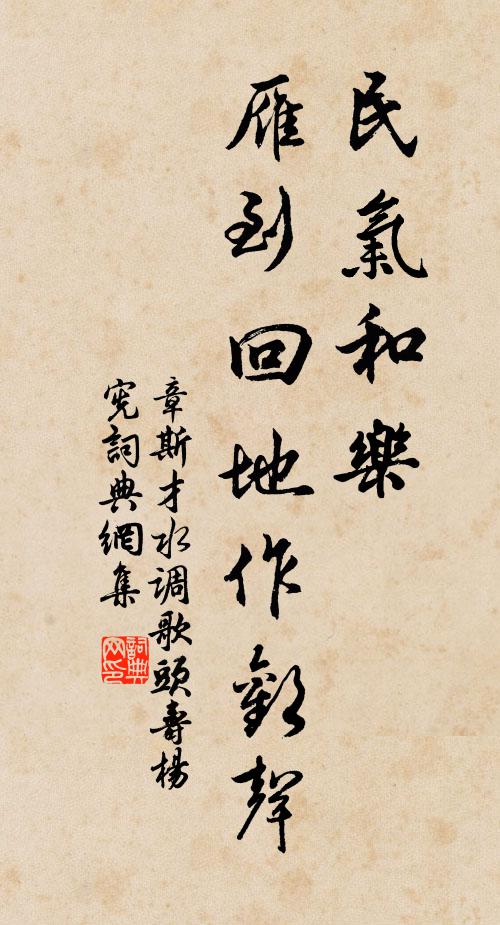 民氣和樂
雁到回地作歡聲
章斯才水调歌頭壽楊
宪詞典網集
詞典
网印